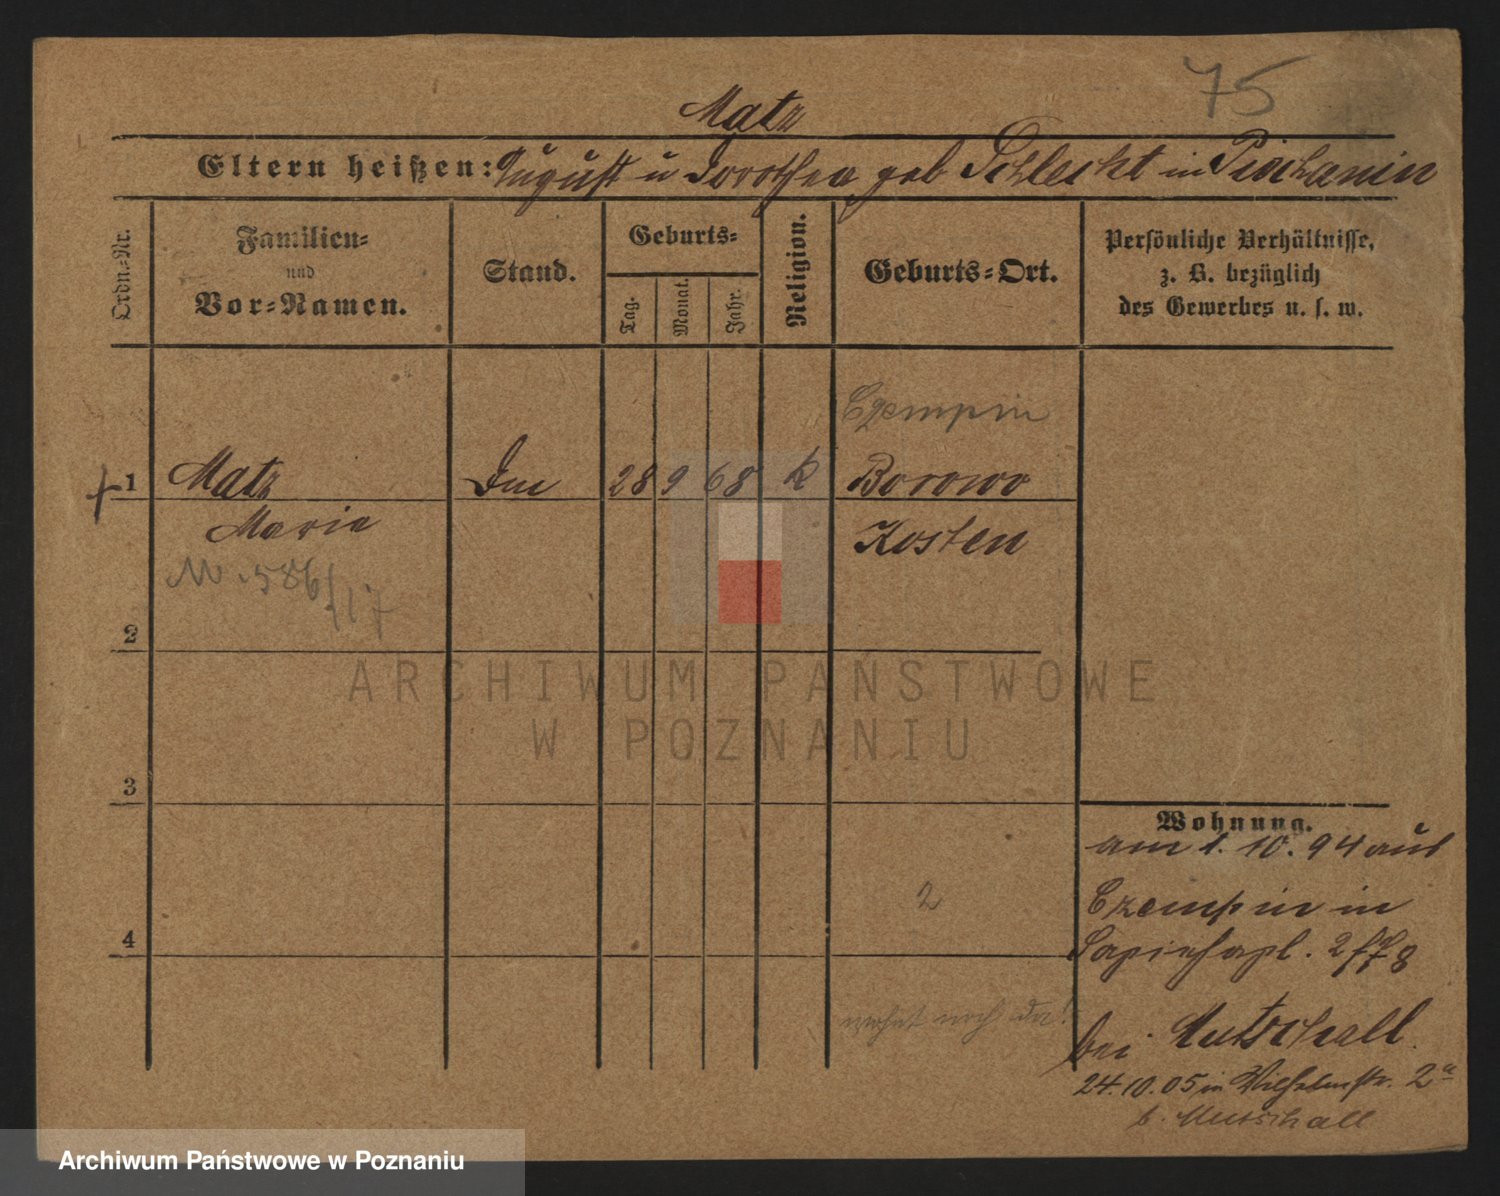 75
Matz
Eltern heißen: August u Dorothea geb Schlecht in Piechanin
Ordn.-Nr.
Familien- und Vor-Namen.
Stand.
Geburts-
Tag.
Monat.
Jahr.
Religion.
Geburts-Ort.
Persönliche Verhältnisse,
z. B. bezüglich
des Gewerbes u. s. w.
Czempin
1 Matz 28 9 68 k Borowo
Maria Kosten
586/17
2
3
Wohnung.
am 1. 10. 94 aus
2
Czempin in
4
Sapiehapl.
wohnt noch da!
bei Mutschall
24.10.05 in Wilhelmstr. 2a
b. Mutschall
ARCHIWUM PAŃSTWOWE
W POZNANIU
Archiwum Państwowe w Poznaniu